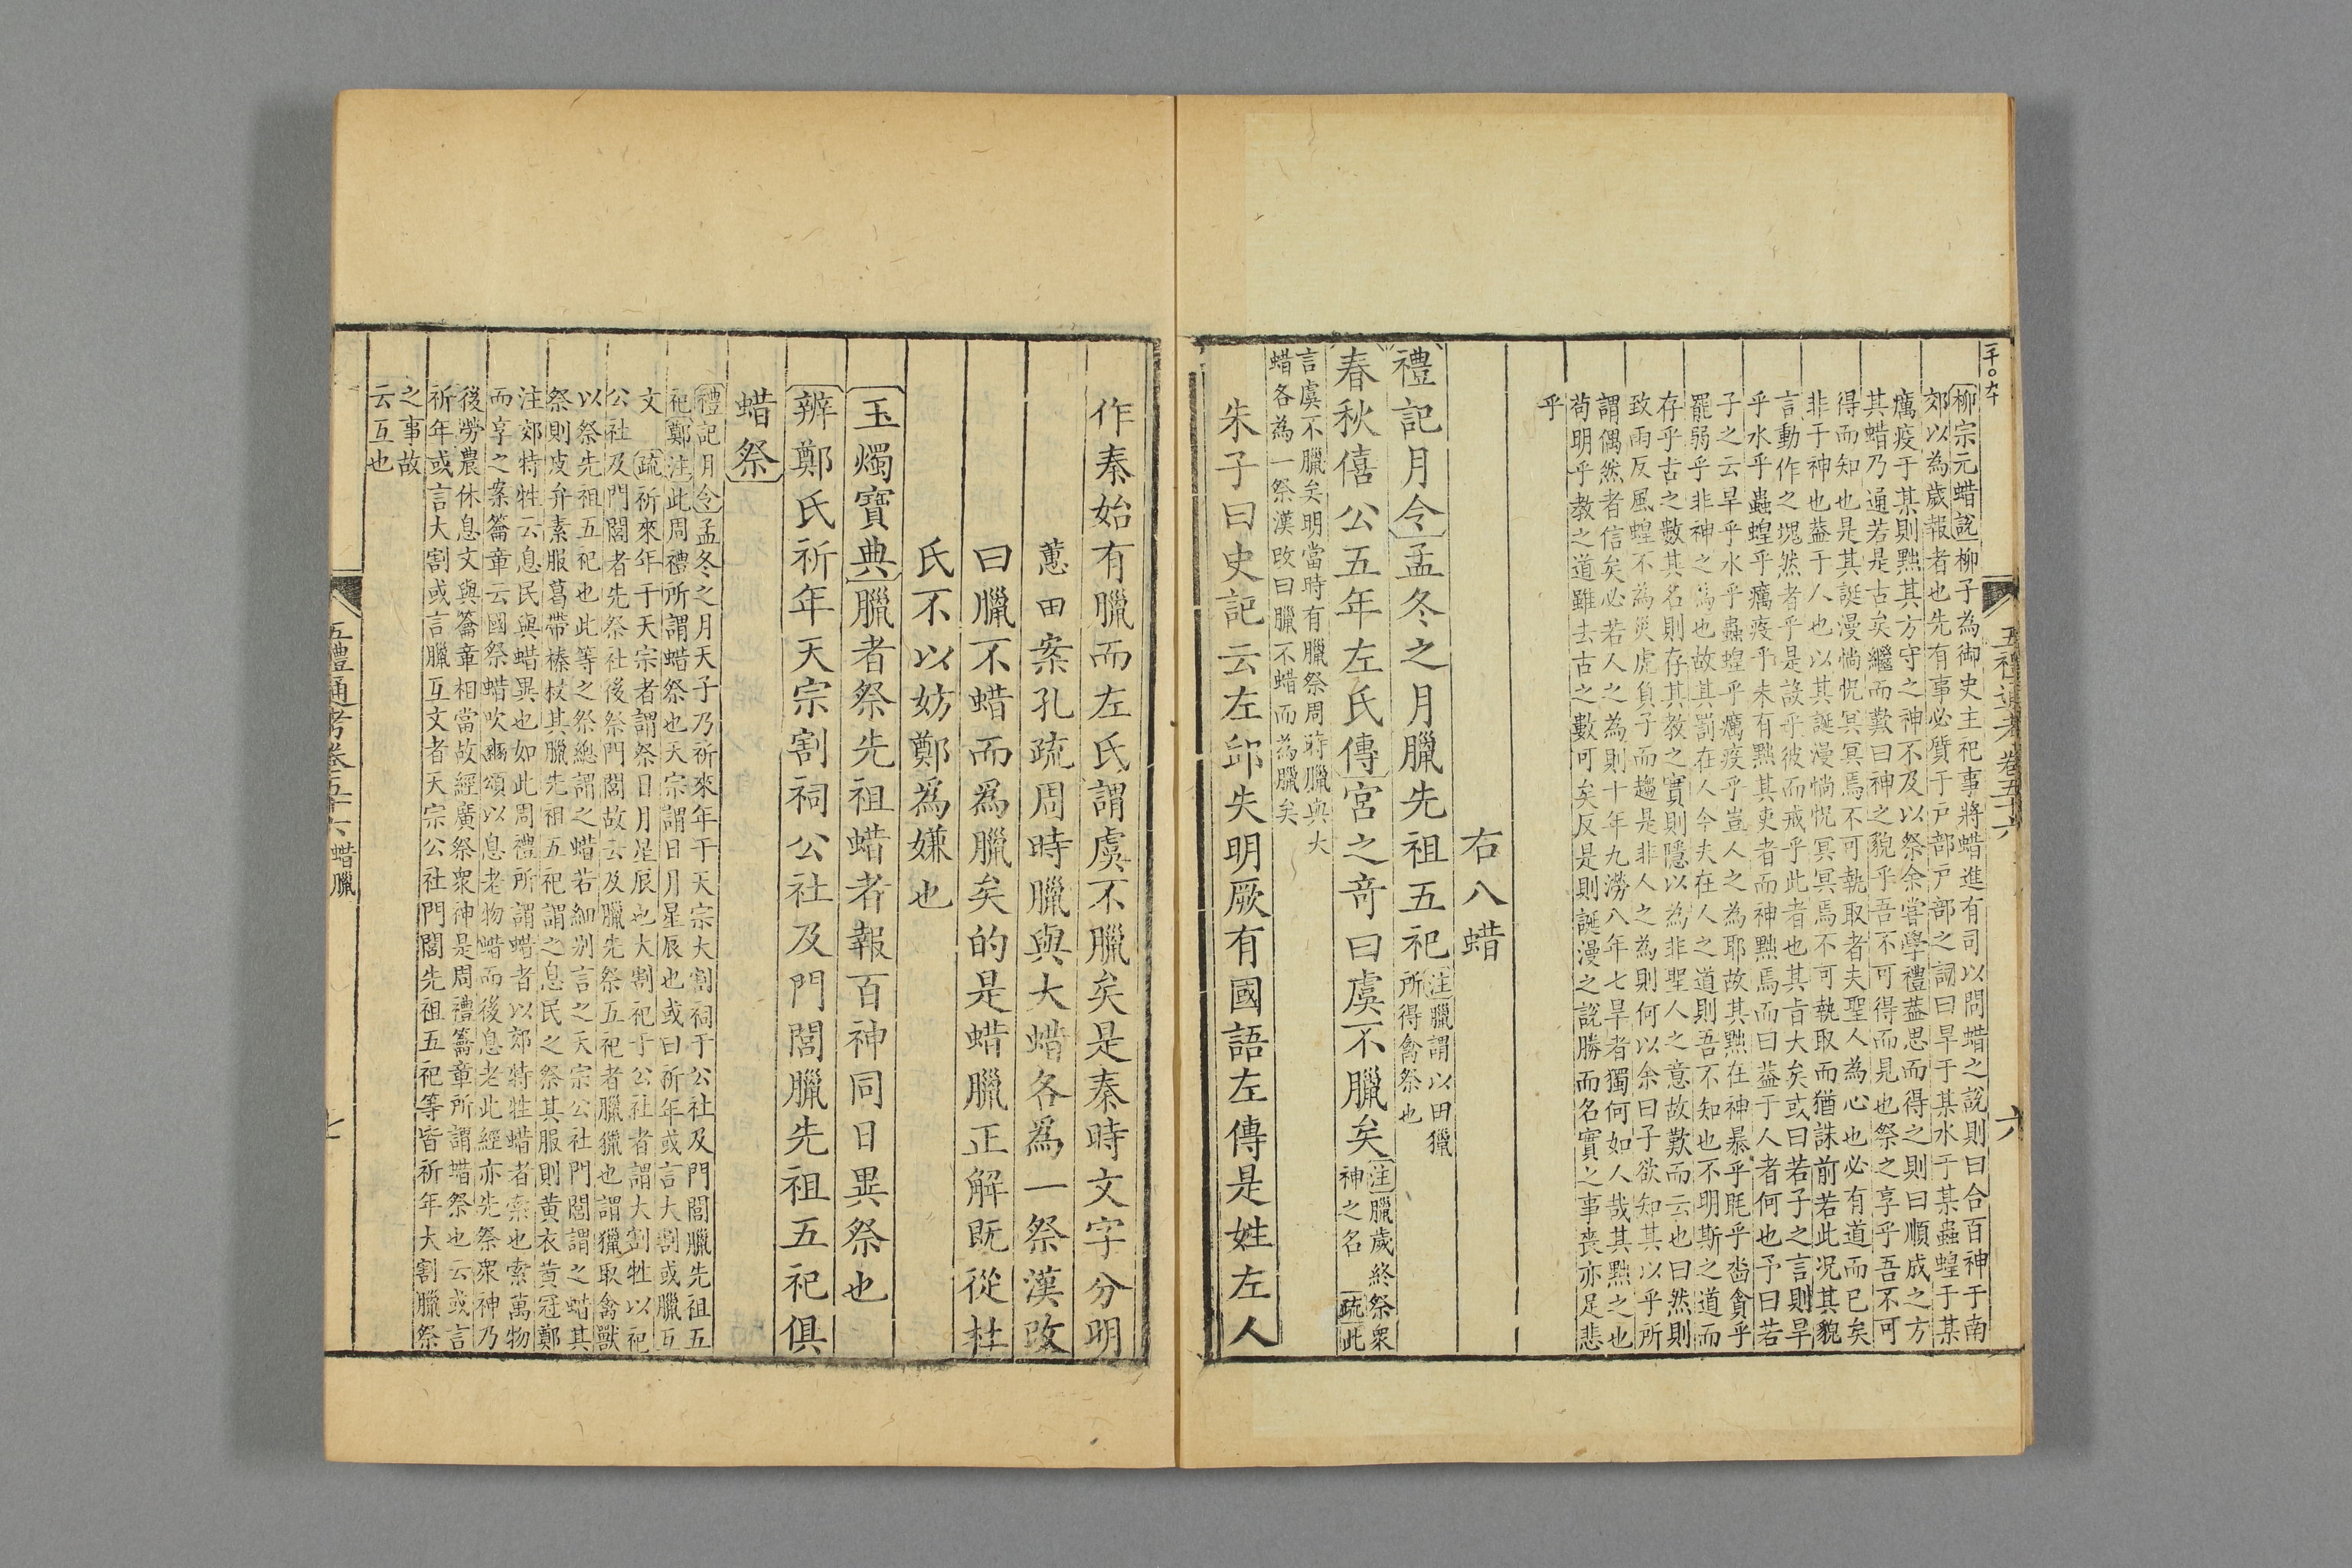 五禮通考卷五十六
六
柳宗元蜡説柳子為御史主祀事將蜡進有司以問蜡之說則曰合百神于南
郊以為歲報者也先有事必質于戶部戶部之詞曰旱于某水于某蟲蝗于某
癘疫于某則黜其方守之神不及以祭余嘗學禮葢思而得之則曰順成之方
其蜡乃通若是古矣繼而歎曰神之貌乎吾不可得而見也祭之享乎吾不可
得而知也是其誕漫惝怳冥冥焉不可執取者夫聖人為心也必有道而已矣
非于神也葢于人也以其誕漫惝怳冥冥焉不可執取而猶誅前若此况其貌
言動作之塊然者乎是設乎彼而戒乎此者也其旨大矣或曰若子之言則旱
乎水乎蟲蝗乎癘疫乎未有黜其吏者而神黜焉而曰葢于人者何也予曰若
子之云旱乎水乎蟲蝗乎癘疫乎豈人之為耶故其黜在神暴乎眊乎沓貪乎
罷弱乎非神之為也故其罰在人今夫在人之道則吾不知也不明斯之道而
存乎古之數其名則存其教之實則隱以為非聖人之意故歎而云也曰然則
致雨反風蝗不為災虎負子而趨是非人之為則何以余曰子欲知其以乎所
謂偶然者信矣必若人之為則十年九澇八年七旱者獨何如人哉其黜之也
苟明乎教之道雖去古之數可矣反是則誕漫之說勝而名實之事喪亦足悲
乎
右八蜡
禮記月令孟冬之月臘先祖五祀注臘謂以田獵
所得禽祭也
春秋僖公五年左氏傳宮之奇曰虞不臘矣注臘歲終祭衆
神之名 疏此
言虞不臘矣明當時有臘祭周時臘與大
蜡各為一祭漢改曰臘不蜡而為臘矣
朱子曰史記云左邱失明厥有國語左傳是姓左人
作秦始有臘而左氏謂虞不臘矣是秦時文字分明
蕙田案孔疏周時臘與大蜡各為一祭漢改
曰臘不蜡而爲臘矣的是蜡臘正解既從杜
氏不以妨鄭爲嫌也
玉燭寶典臘者祭先祖蜡者報百神同日異祭也
辨鄭氏祈年天宗割祠公社及門閭臘先祖五祀俱
蜡祭
禮記月令孟冬之月天子乃祈來年于天宗大割祠于公社及門閭臘先祖五
祀鄭注此周禮所謂蜡祭也天宗謂日月星辰也或曰祈年或言大割或臘互
文 疏祈來年于天宗者謂祭日月星辰也大割祀于公社者謂大割牲以祀
公社及門閭者先祭社後祭門閭故云及臘先祭五祀者臘獵也謂獵取禽獸
以祭先祖五祀也此等之祭總謂之蜡若細别言之天宗公社門閭謂之蜡其
祭則皮弁素服葛帶榛杖其臘先祖五祀謂之息民之祭其服則黄衣黄冠鄭
注郊特牲云息民與蜡異也如此周禮所謂蜡者以郊特牲蜡者索也索萬物
而享之案籥章云國祭蜡吹豳頌以息老物蜡而後息老此經亦先祭衆神乃
後勞農休息文與籥章相當故經廣祭衆神是周禮籥章所謂蜡祭也云或言
祈年或言大割或言臘互文者天宗公社門閭先祖五祀等皆祈年大割臘祭
之事故
云互也
五禮通考卷五十六 蜡臘
七